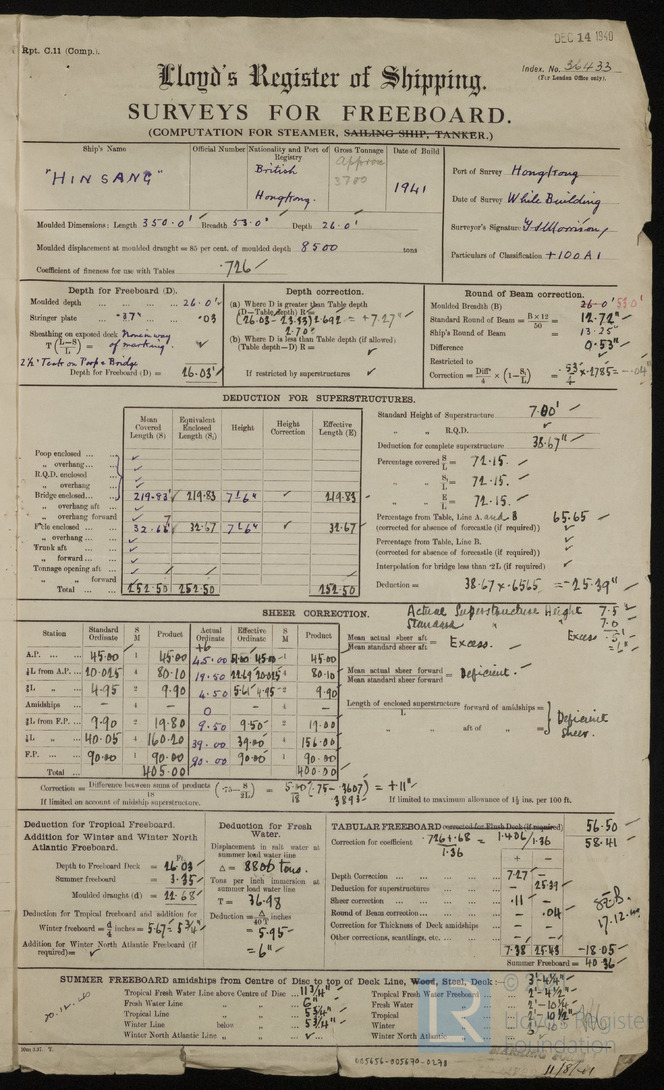 DEC 14 1940
Rpt. C.11 (Comp.).
Index. No. 36433
(For London Office only).
Lloyd's Register of Shipping.
SURVEYS FOR FREEBOARD.
(COMPUTATION FOR STEAMER, SAILING SHIP, TANKER.)
Ship's Name Official Number Nationality and Port of Registry Gross Tonnage Date of Build
"HINSANG" British Hongkong. Approx 3700 1941
Port of Survey Hongkong
Date of Survey While Building
Surveyor's Signature
Particulars of Classification +100A1
Moulded Dimensions: Length 350.0' Breadth 53.0' Depth 26.0'
Moulded displacement at moulded draught = 85 per cent. of moulded depth 8500 tons
Coefficient of fineness for use with Tables .726
Depth for Freeboard (D).
Moulded depth ... ... ... ... 26.0'
Stringer plate ... .37" ... ... .03
Sheathing on exposed deck None in way of marking.
T (L-S/L) =
2½" Teak on Poop & Bridge
Depth for Freeboard (D) = 26.03'
Depth correction.
(a) Where D is greater than Table depth
(D—Table depth) R =
(26.03 - 23.33) 2.692 = +7.27"
2.70
(b) Where D is less than Table depth (if allowed)
(Table depth—D) R =
If restricted by superstructures
Round of Beam correction.
Moulded Breadth (B) 26.0' 53.0'
Standard Round of Beam = B×12/50 = 12.72"
Ship's Round of Beam = 13.25"
Difference 0.53"
Restricted to
Correction = Diffce/4 × (1-S/L) = .53/4 × .2785 = -.04"
DEDUCTION FOR SUPERSTRUCTURES.
Mean Covered Length (S) Equivalent Enclosed Length (S₁) Height Height Correction Effective Length (E)
Poop enclosed ... ...
„ overhang ... ...
R.Q.D. enclosed ...
„ overhang ...
Bridge enclosed... ... 219.83' 219.83 7'6" 219.83
„ overhang aft ...
„ overhang forward
F'cle enclosed ... ... 32.67 7'6" 32.67
„ overhang ... ...
Trunk aft ... ...
„ forward ... ...
Tonnage opening aft ...
„ „ forward
Total ... ... 252.50 252.50 252.50
Standard Height of Superstructure 7.00'
„ „ R.Q.D.
Deduction for complete superstructure 38.67"
Percentage covered S/L = 72.15.
„ „ S₁/L = 72.15.
„ „ E/L = 72.15.
Percentage from Table, Line A. and B 65.65
(corrected for absence of forecastle (if required))
Percentage from Table, Line B.
(corrected for absence of forecastle (if required))
Interpolation for bridge less than ·2L (if required)
Deduction = 38.67 × .6565 = -25.39"
SHEER CORRECTION.
Actual Superstructure Height 7.5
Standard „ 7.0
Excess .5' = 6"
Station Standard Ordinate S M Product Actual Ordinate Effective Ordinate S M Product
+6
A.P. ... ... 45.00 1 45.00 45.00 45.00 1 45.00
⅙L from A.P. ... 20.025 4 80.10 19.50 20.025 4 80.10
⅓L „ ... 4.95 2 9.90 4.50 4.95 2 9.90
Amidships ... - 4 - 0 - 4 -
⅓L from F.P. ... 9.90 2 19.80 9.50 9.50 2 19.00
⅙L „ ... 40.05 4 160.20 39.00 39.00 4 156.00
F.P. ... ... 90.00 1 90.00 90.00 90.00 1 90.00
Total ... ... 405.00 400.00
Mean actual sheer aft / Mean standard sheer aft = Excess.
Mean actual sheer forward / Mean standard sheer forward = Deficient.
Length of enclosed superstructure / L forward of amidships =
„ „ aft of „ =
Deficient sheer.
Correction = Difference between sums of products / 18 (·75 - S/2L) = 5.00/18 (.75 - .3607) = +.11"
.3893
If limited on account of midship superstructure.
If limited to maximum allowance of 1½ ins. per 100 ft.
Deduction for Tropical Freeboard.
Addition for Winter and Winter North Atlantic Freeboard.
Ft.
Depth to Freeboard Deck = 26.03
Summer freeboard = 3.35
Moulded draught (d) = 22.68
Deduction for Tropical freeboard and addition for Winter freeboard = d/4 inches = 5.67 = 5¾"
Addition for Winter North Atlantic Freeboard (if required) =
Deduction for Fresh Water.
Displacement in salt water at summer load water line
Δ = 8806 tons.
Tons per inch immersion at summer load water line
T = 36.98
Deduction = Δ/40T inches
= 5.95
= 6"
TABULAR FREEBOARD corrected for Flush Deck (if required) 56.50
Correction for coefficient .726+.68/1.36 = 1.406/1.36 58.41
+ -
Depth Correction ... ... 7.27 -
Deduction for superstructures ... - 25.39
Sheer correction ... ... .11 -
Round of Beam correction ... - .04
Correction for Thickness of Deck amidships - -
Other corrections, scantlings, etc. ... - -
7.38 25.43 -18.05
Summer Freeboard = 40.36
17.12.40
20.12.40
SUMMER FREEBOARD amidships from Centre of Disc to top of Deck Line, Wood, Steel, Deck :— 3'-4¼"
Tropical Fresh Water Line above Centre of Disc ... 11¾"
Fresh Water Line „ „ ... 6"
Tropical Line „ „ ... 5¾"
Winter Line below „ „ ... 5¾"
Winter North Atlantic Line „ „ „ ...
Tropical Fresh Water Freeboard ... 2'-4½"
Fresh Water „ ... 2'-10¼
Tropical „ ... 2'-10½
Winter „ ... 3'-10
Winter North Atlantic „ ...
© Lloyd's Register Foundation
LR
005656-005670-0278
11/8/41